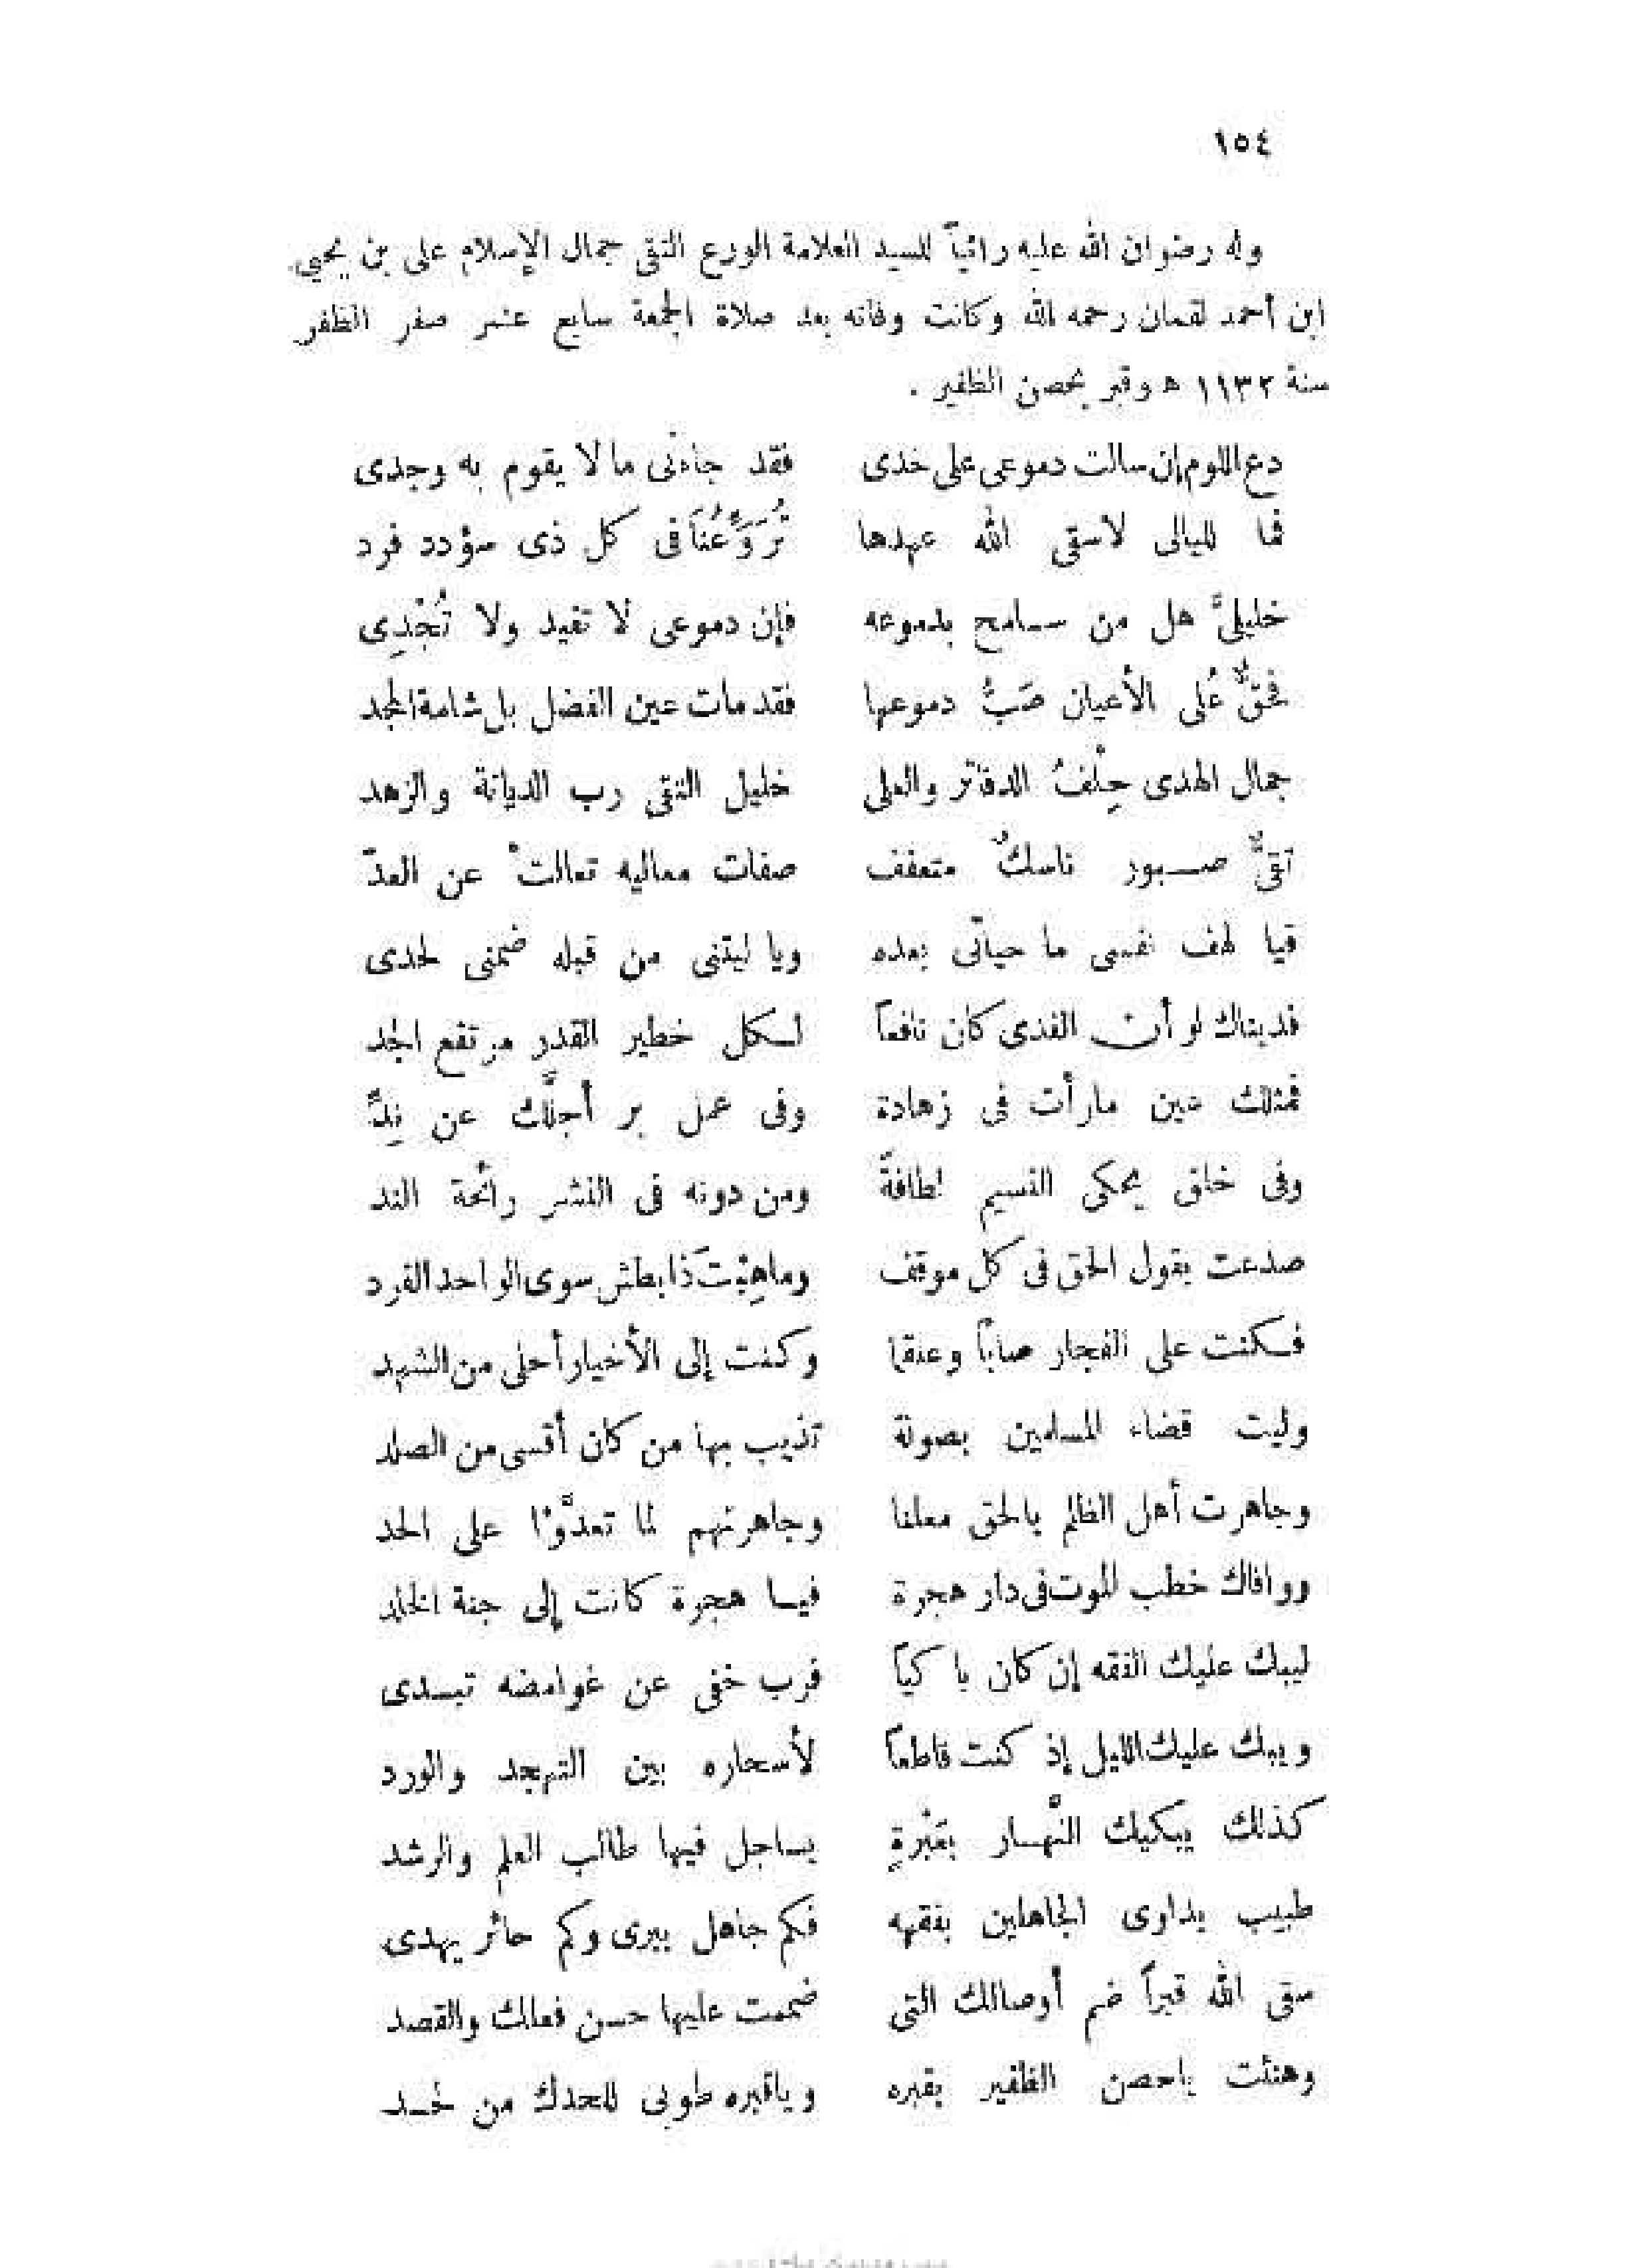 ١٥٤
وله رضوان الله عليه راثياً للسيد العلامة الورع التقى جمال الإسلام على بن يحيى
ابن أحمد لقمان رحمه الله وكانت وفاته بعد صلاة الجمعة سابع عشر صفر الظفر
سنة ١١٣٢ ه وقبر بحصن الظفير .
دع اللوم إن سالت دموعى على خدى فقد جاءنى ما لا يقوم به وجدى
فما لليالى لاسقى الله عهدها تُرَوِّعُنَا فى كل ذى سؤدد فرد
خليلىَّ هل من سامح بدموعه فإن دموعى لا تفيد ولا تُجْدِى
فحقٌّ عَلى الأعيان صَبُّ دموعها فقد مات عين الفضل بل شامة المجد
جمال الهدى حِلْفُ الدفاتر والعلى خليل التقى رب الديانة والزهد
تقىٌّ صبور ناسكٌ متعفف صفات معاليه تعالتْ عن العدّ
فيا لهف نفسى ما حياتى بعده ويا ليتنى من قبله ضمنى لحدى
فديناك لو أن الفدى كان نافعاً لكل خطير القدر مرتفع الجد
فمثلك عين ما رأت فى زهادة وفى عمل بر أجلَّك عن نِدِّ
وفى خلق يحكى النسيم لطافةً ومن دونه فى النشر رائحة الند
صدعت بقول الحق فى كل موقف وما هِبْتَ ذا بطش سوى الواحد الفرد
فكنت على الفجار صاباً وعلقما وكنت إلى الأخيار أحلى من الشهد
وليت قضاء المسلمين بصولة تذيب بها من كان أقسى من الصلد
وجاهرت أهل الظلم بالحق معلنا وجاهرتهم لما تعدَّوْا على الحد
ووافاك خطب الموت فى دار هجرة فيا هجرة كانت إلى جنة الخلد
ليبك عليك الفقه إن كان باكياً فرب خفى عن غوامضه تبدى
ويبك عليك الليل إذ كنت قاطعاً لأسحاره بين التهجد والورد
كذلك يبكيك النَّهار بعَبْرةِ يساجل فيها طالب العلم والرشد
طبيب يداوى الجاهلين بفقهه فكم جاهل يبرى وكم حائر يهدى
سقى الله قبراً ضم أوصالك التى ضممت عليها حسن فعالك والقصد
وهنئت يا حصن الظفير بقبره ويا قبره طوبى للحدك من لحد